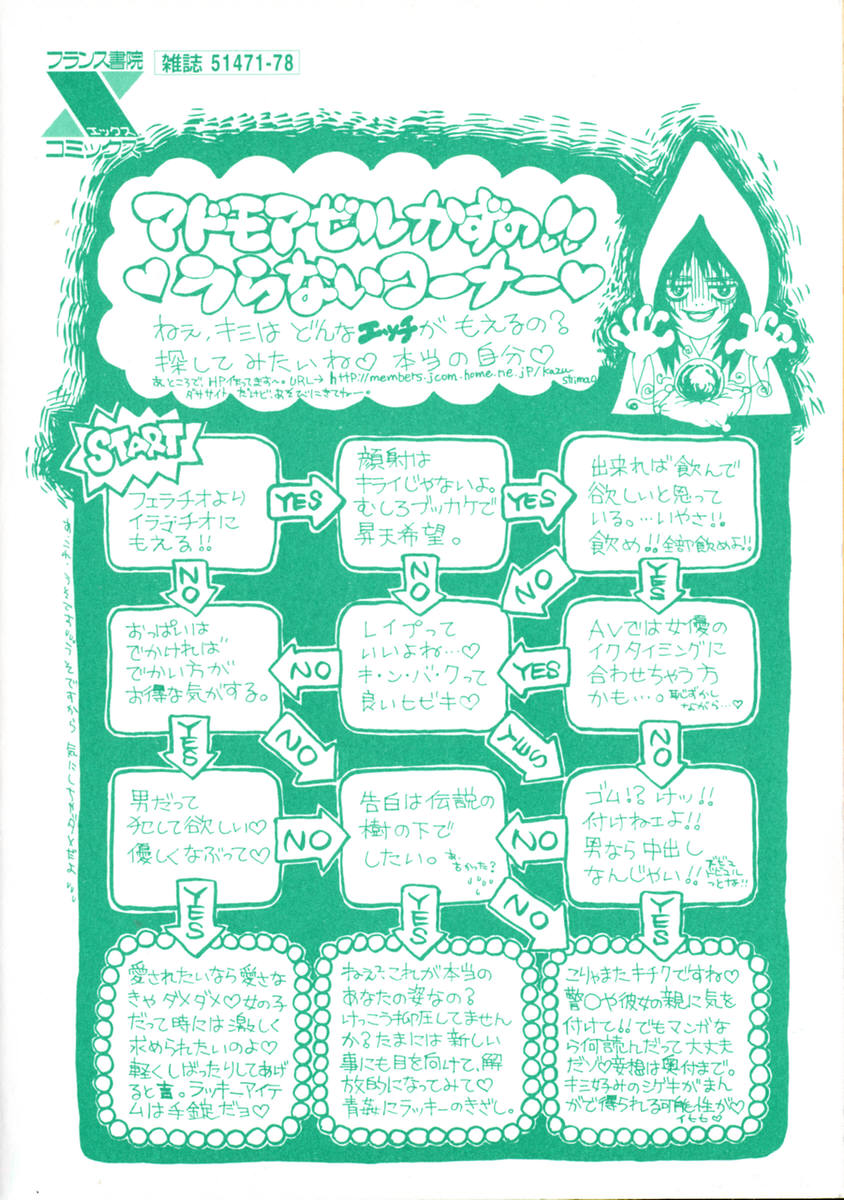 フランス書院
雑誌 51471-78
エックス
コミックス
マドモアゼルかずの!!
♡うらないコーナー♡
ねぇ,キミは どんなエッチが もえるの?
探して みたいね♡ 本当の自分♡
あ,ところで,HP作ってきます〜。URL→http://members.jcom.home.ne.jp/kazu-
shima0
ダササイト だけど,あそびにきてねー。
START
フェラチオより
イラマチオに
もえる!!
YES
顔射は
キライじゃないよ。
むしろブッカケで
昇天希望。
YES
出来れば飲んで
欲しいと思って
いる。…いやさ!!
飲め!!全部飲めよ!!
NO
NO
NO
YES
おっぱいは
でかければ
でかい方が
お得な気がする。
NO
レイプって
いいよね…♡
キ・ン・バ・クって
良いヒビキ♡
YES
AVでは女優の
イクタイミングに
合わせちゃう方
かも…。
恥ずかし
ながら…♡
YES
NO
YES
NO
男だって
犯して欲しい♡
優しくなぶって♡
NO
告白は伝説の
樹の下で
したい。
NO
ゴム!?けッ!!
付けねェよ!!
男なら中出し
なんじゃい!!
YES
YES
NO
YES
愛されたいなら愛さな
きゃ ダメダメ♡女の子
だって時には激しく
求められたいのよ♡
軽くしばったりしてあげ
ると吉。ラッキーアイテ
ムは手錠だヨ♡
ねえ?これが本当の
あなたの姿なの?
けっこう抑圧してません
か?たまには新しい
事にも目を向けて、解
放的になってみて♡
青姦にラッキーのきざし。
こりゃまたキチクですね♡
警○や彼女の親に気を
付けて!!でもマンガな
ら何読んだって大丈夫
だゾ♡妄想は奥付まで。
キミ好みのシゲキがまん
がで得られる可能性が♡
イヒヒ♡